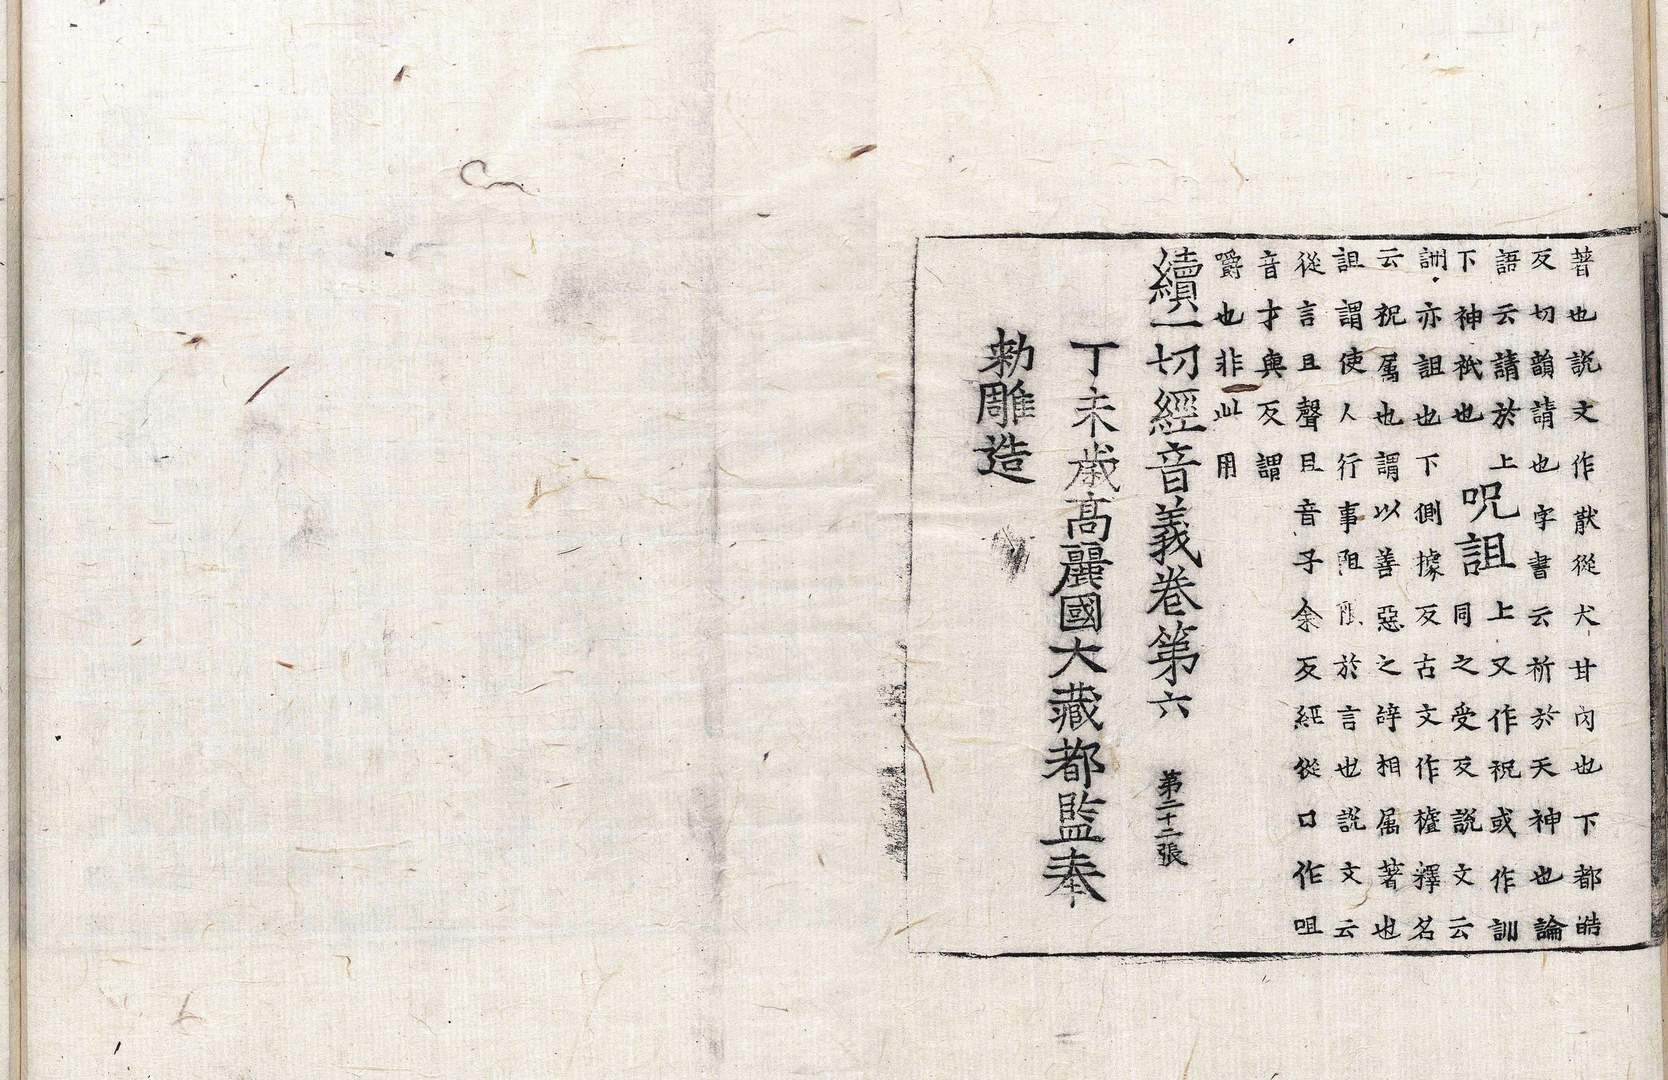 著也說文作猒從犬甘肉也下都皓
反切韻請也字書云祈於天神也論
語云請於上
下神祇也
呪詛
上又作祝或作訓
同之受反說文云
訓亦詛也下側據反古文作𥛜釋名
云祝屬也謂以善惡之辝相属著也
詛謂使人行事阻限於言也說文云
從言且聲且音子余反經從口作咀
音才與反謂
嚼也非此用
續一切經音義卷第六
第二十二張
丁未歲高麗國大藏都監奉
勅雕造